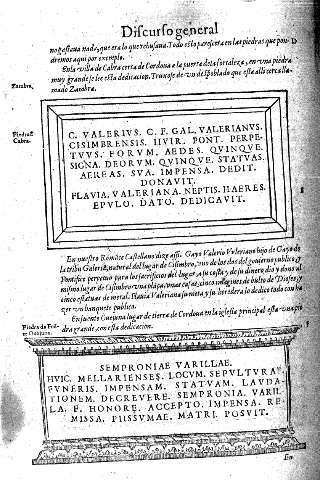 Discurso general
no gastaua nada, que era lo que rehusaua. Todo esto parescera en las piedras que pon-
dremos aqui por exemplo.
En la villa de Cabra cerca de Cordoua a la puerta de la fortaleza, en vna piedra
muy grande se lee esta dedicacion. Truxose de vn despoblado que esta alli cerca lla-
mado Zambra.
Zambra.
Piedra de
Cabra.
C. VALERIVS. C. F. GAL. VALERIANVS.
CISIMBRENSIS. IIVIR. PONT. PERPE-
TVVS. FORVM. AEDES. QVINQVE.
SIGNA. DEORVM. QVINQVE. STATVAS.
AEREAS. SVA. IMPENSA. DEDIT.
DONAVIT.
FLAVIA. VALERIANA. NEPTIS. HAERES.
EPVLO. DATO. DEDICAVIT.
En nuestro Romãce Castellano dize assi. Gayo Valerio Valeriano hijo de Gayo de
la tribu Galeria, natural del lugar de Cisimbro, vno de los dos del gouierno publico y
Pontifice perpetuo para los sacrificios del lugar, a su costa y de su dinero dio y dono al
mismo lugar vna plaça, cinco imagines de bulto de Dioses, y
cinco estatuas de metal. Flauia Valeriana su nieta y su heredera lo dedico todo con ha-
zer vn banquete publico.
En fuente Ouejuna lugar de tierra de Cordoua en la iglesia principal esta vna pie
dra grande con esta dedicacion.
Piedra de Fuẽ
te Ouejuna.
SEMPRONIAE VARILLAE.
HVIC. MELLARIENSES. LOCVM. SEPVLTVRAE.
FVNERIS. IMPENSAM. STATVAM. LAVDA-
TIONEM. DECREVERE. SEMPRONIA. VARIL-
LA. F. HONORE. ACCEPTO. IMPENSA. RE-
MISSA. PIISSVMAE. MATRI. POSVIT.
En